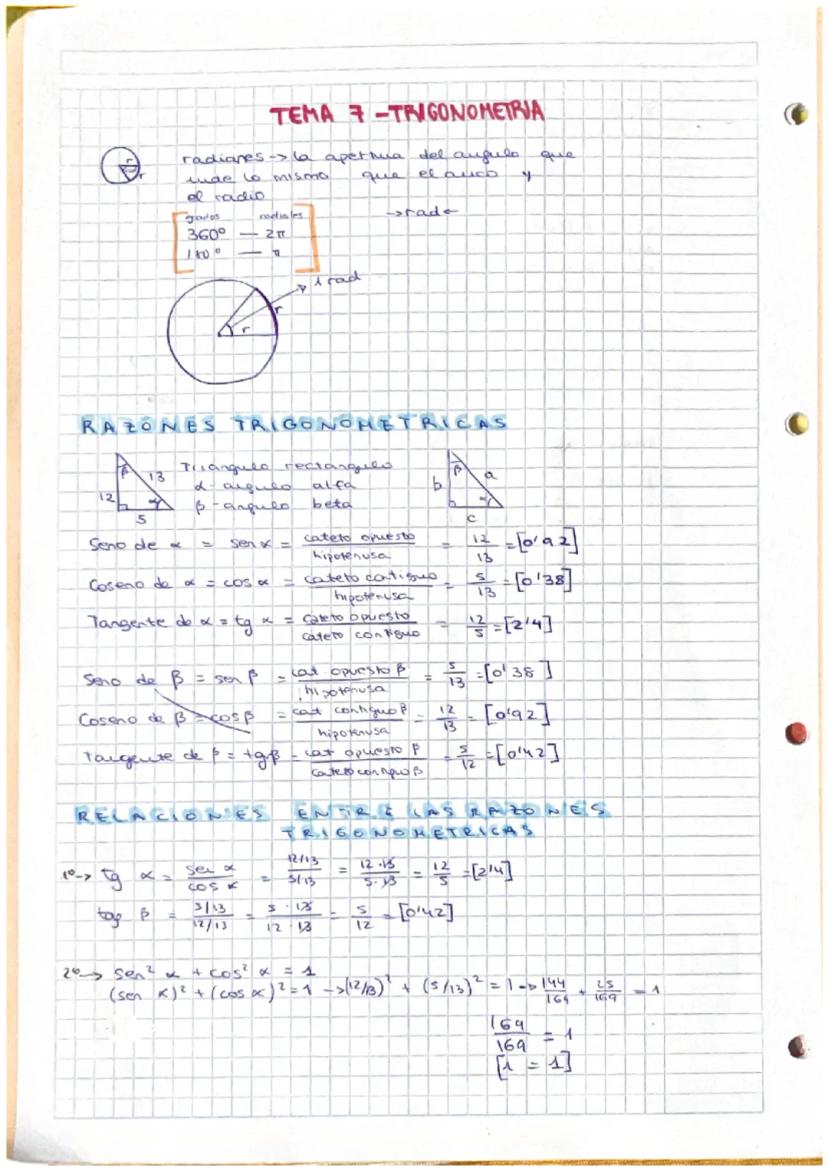 TEMA 7 - TRIGONOMETRIA
radianes -> la apertura del angulo que
mide lo mismo que el arco y
el radio
grados radiales
360º — 2π
180º — π
-> rad
r
r
1 rad
r
r
RAZONES TRIGONOMETRICAS
Triangulo rectangulo
α - angulo alfa
β - angulo beta
β 13 α 12 5
β a b α c
Seno de α = sen α = cateto opuesto / hipotenusa = 12/13 = [0'92]
Coseno de α = cos α = cateto contiguo / hipotenusa = 5/13 = [0'38]
Tangente de α = tg α = cateto opuesto / cateto contiguo = 12/5 = [2'4]
Seno de β = sen β = cat opuesto β / hipotenusa = 5/13 = [0'38]
Coseno de β = cosβ = cat contiguo β / hipotenusa = 12/13 = [0'92]
Tangente de β = tgβ = cat opuesto β / cateto contiguo β = 5/12 = [0'42]
RELACIONES ENTRE LAS RAZONES
TRIGONOMETRICAS
1º -> tg α = sen α / cos α = 12/13 / 5/13 = 12·13 / 5·13 = 12/5 = [2'4]
β = 5/13 / 12/13 = 5·13 / 12·13 = 5/12 = [0'42]
2º -> sen² α + cos² α = 1
(sen α)² + (cos α)² = 1 -> (12/13)² + (5/13)² = 1 -> 144/169 + 25/169 = 1
169/169 = 1
[1 = 1]